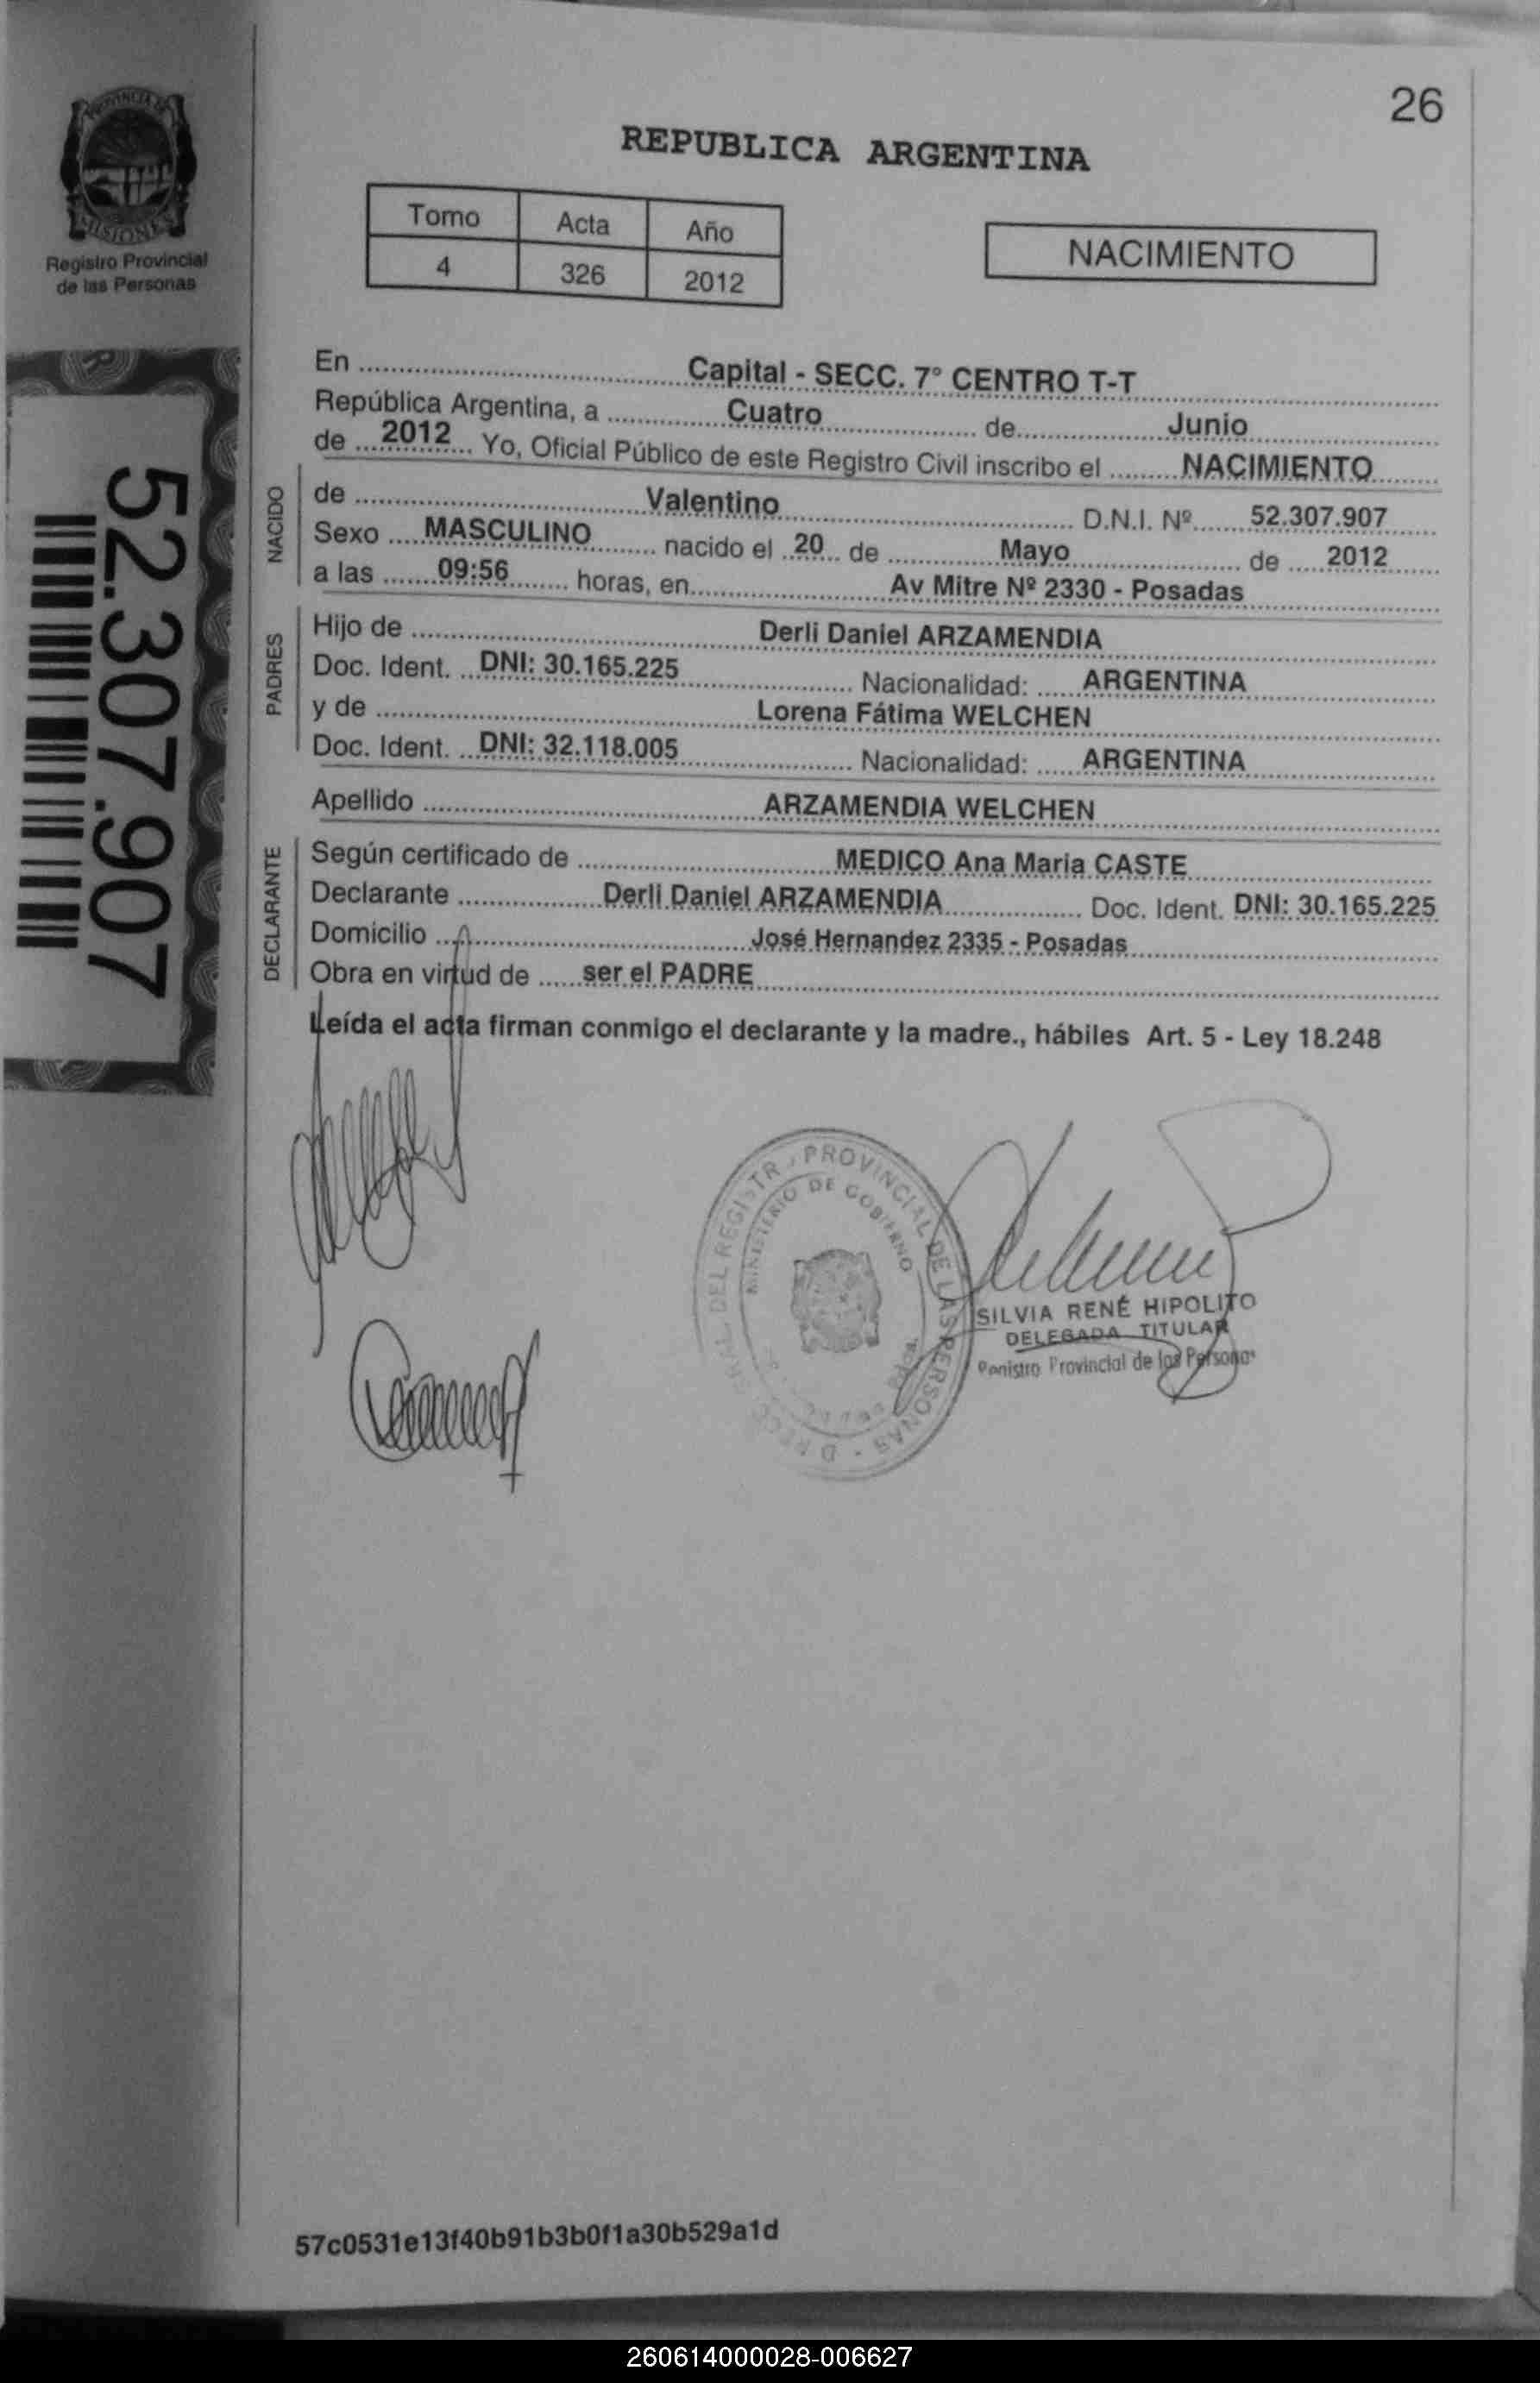 26
PROVINCIA DE
MISIONES
Registro Provincial
de las Personas
REPUBLICA ARGENTINA
Tomo Acta Año
4 326 2012
NACIMIENTO
52.307.907
En Capital - SECC. 7º CENTRO T-T
República Argentina, a Cuatro de Junio
de 2012 Yo, Oficial Público de este Registro Civil inscribo el NACIMIENTO
NACIDO
de Valentino D.N.I. Nº 52.307.907
Sexo MASCULINO nacido el 20 de Mayo de 2012
a las 09:56 horas, en Av Mitre Nº 2330 - Posadas
PADRES
Hijo de Derli Daniel ARZAMENDIA
Doc. Ident. DNI: 30.165.225 Nacionalidad: ARGENTINA
y de Lorena Fátima WELCHEN
Doc. Ident. DNI: 32.118.005 Nacionalidad: ARGENTINA
Apellido ARZAMENDIA WELCHEN
DECLARANTE
Según certificado de MEDICO Ana Maria CASTE
Declarante Derli Daniel ARZAMENDIA Doc. Ident. DNI: 30.165.225
Domicilio José Hernandez 2335 - Posadas
Obra en virtud de ser el PADRE
Leída el acta firman conmigo el declarante y la madre., hábiles Art. 5 - Ley 18.248
PROVINCIAL DE LAS PERSONAS
MINISTERIO DE GOBIERNO
SILVIA RENÉ HIPOLITO
DELEGADA TITULAR
Registro Provincial de las Personas
57c0531e13f40b91b3b0f1a30b529a1d
260614000028-006627